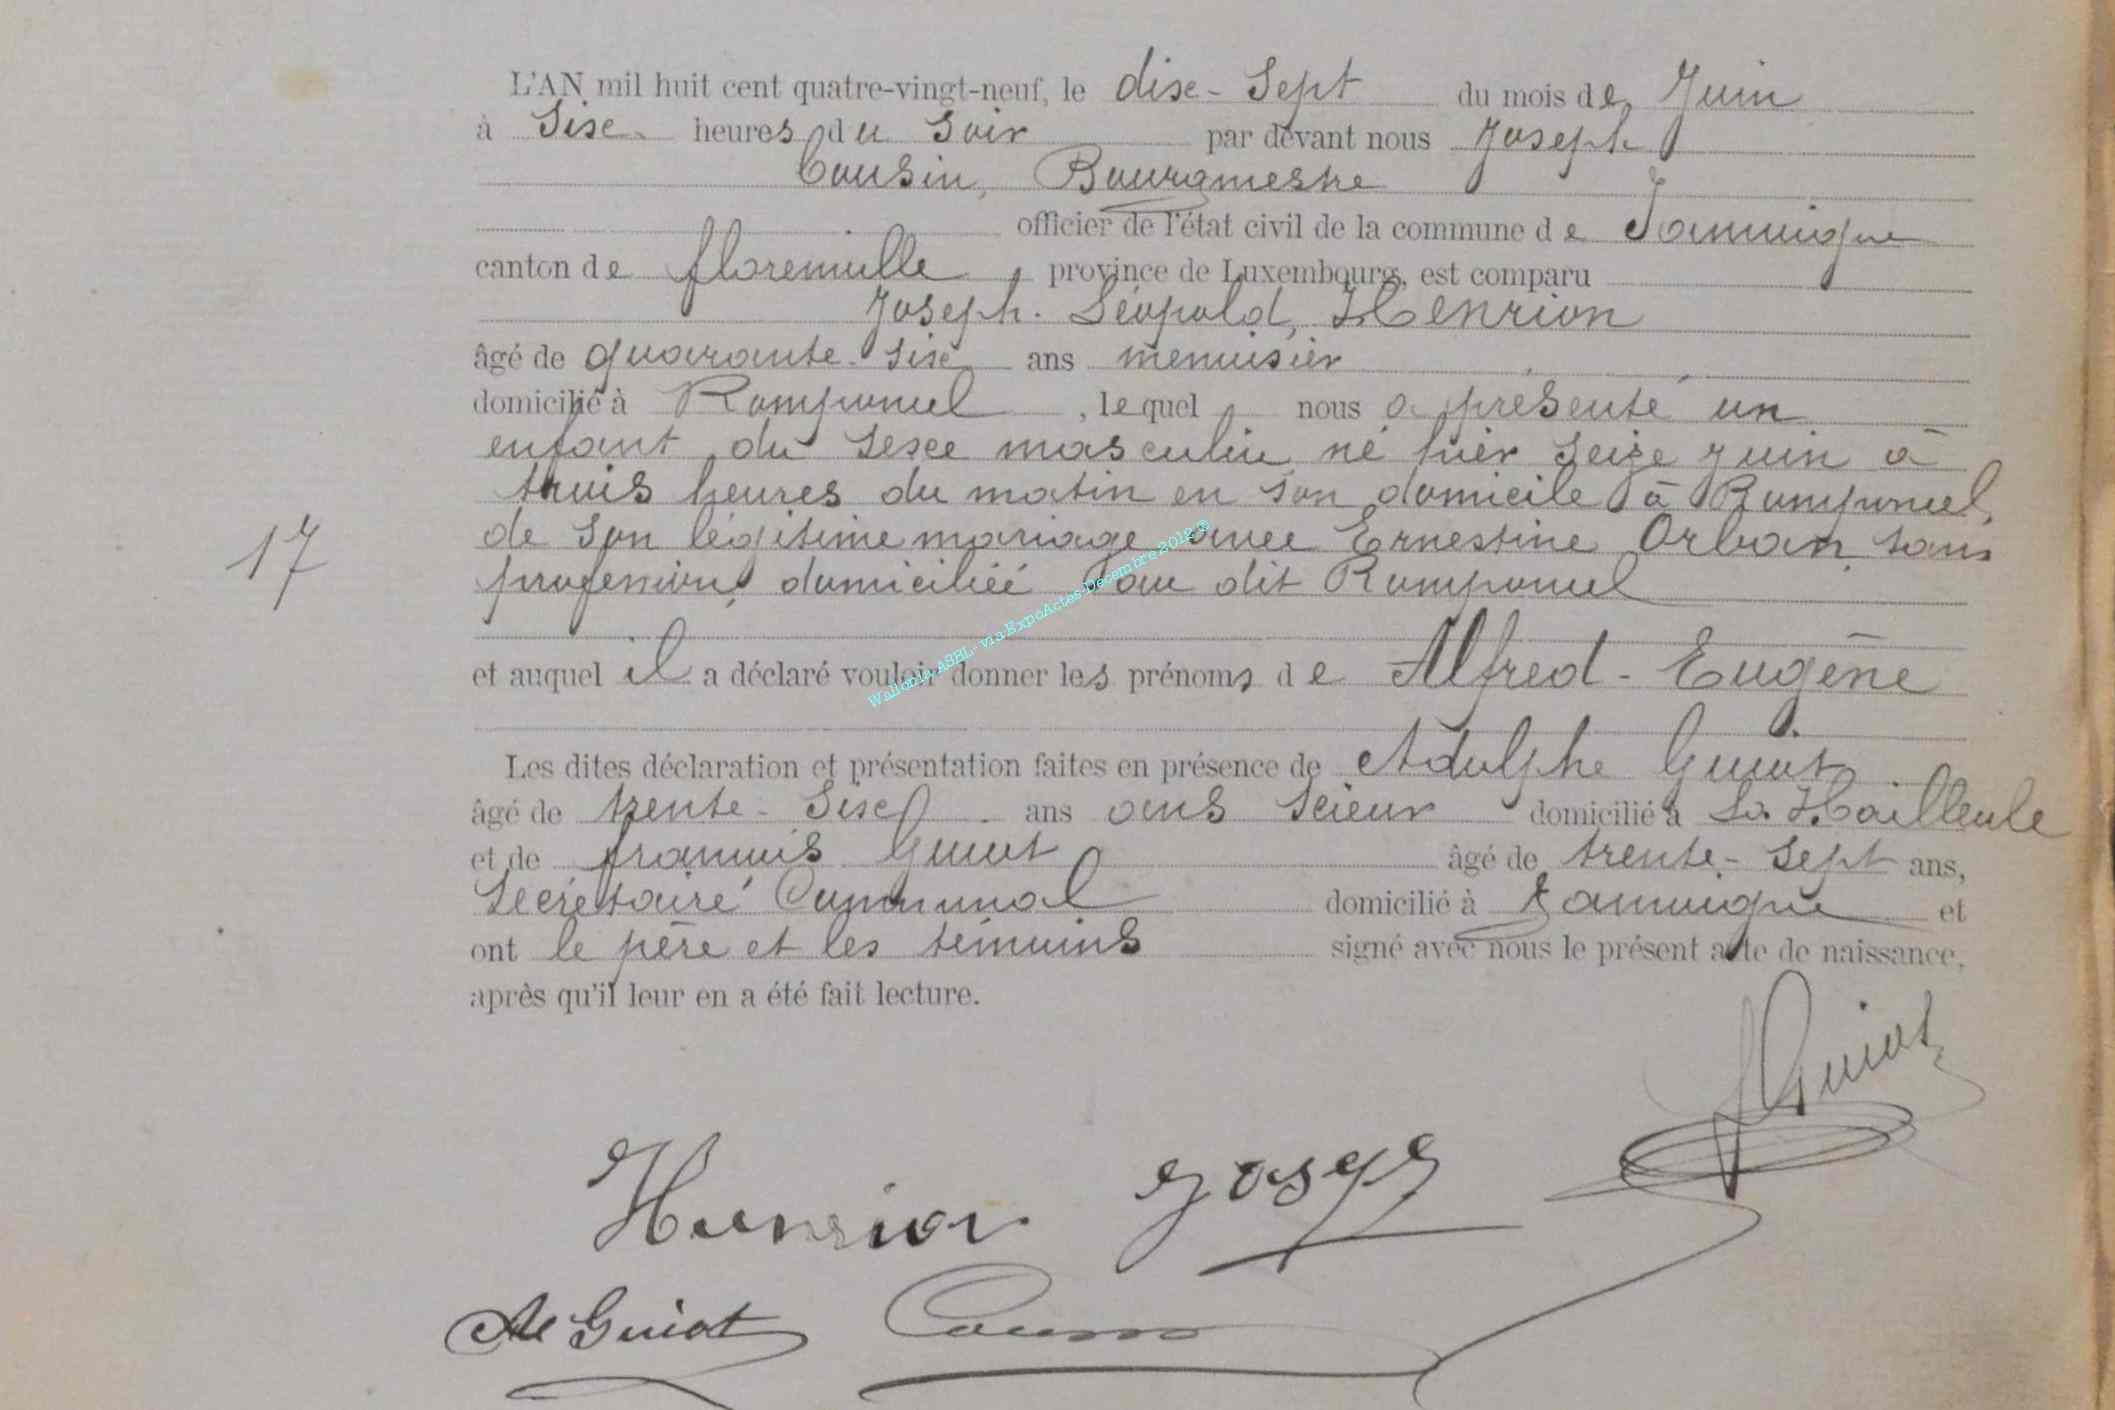 L'AN mil huit cent quatre-vingt-neuf, le dix-Sept du mois de Juin
à Six heures du Soir par devant nous Joseph
Cousin, Bourgmestre
officier de l'état civil de la commune de Jamoigne
canton de florenville province de Luxembourg, est comparu
Joseph. Léopold, Henrion
âgé de quarante-Six ans menuisier
domicilié à Romponcel, lequel nous a présenté un
enfant du Sexe masculin né hier Seize Juin à
trois heures du matin en son domicile à Romponcel,
de Son légitime mariage avec Ernestine Orban, sans
profession, domiciliée au dit Romponcel
17
et auquel il a déclaré vouloir donner les prénoms de Alfred-Eugène
Les dites déclaration et présentation faites en présence de Adolphe Guiot
âgé de trente-Six ans ans Scieur domicilié à La Hailleule
et de françois Guiot âgé de trente-Sept ans,
Secrétaire Communal domicilié à Jamoigne et
ont le père et les témoins signé avec nous le présent acte de naissance,
après qu'il leur en a été fait lecture.
Guiot
Henrion Joseph
Ad Guiot Cousin
Wallonia ASBL - via ExpoActes-Decembre 2012 ©